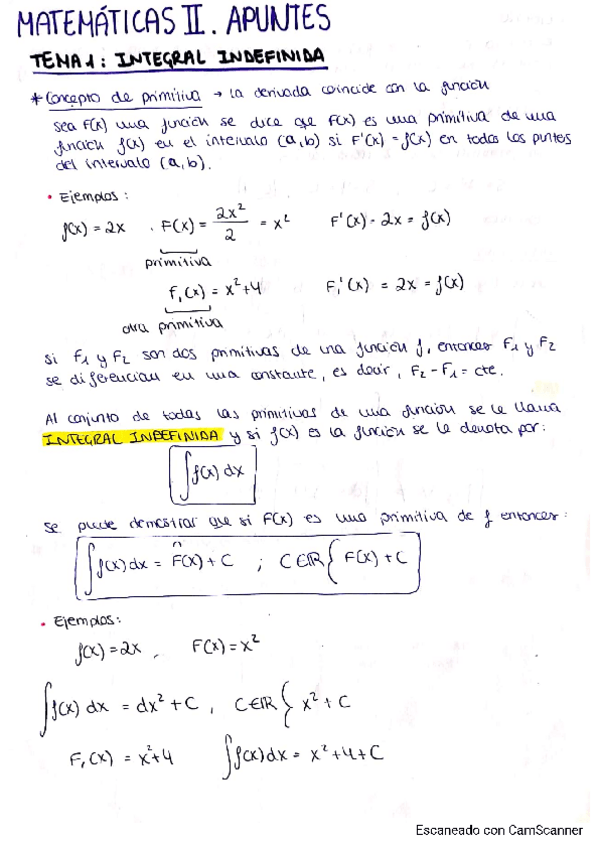 MATEMÁTICAS II. APUNTES
TEMA 1: INTEGRAL INDEFINIDA
* Concepto de primitiva → La derivada coincide con la función
sea F(x) una función se dice que F(x) es una primitiva de una
función f(x) en el intervalo (a,b) si F'(x) = f(x) en todos los puntos
del intervalo (a,b).
• Ejemplos:
f(x) = 2x . F(x) = 2x²/2 = x² F'(x) = 2x = f(x)
primitiva
F₁(x) = x²+4 F₁'(x) = 2x = f(x)
otra primitiva
si F₁ y F₂ son dos primitivas de una función f, entonces F₁ y F₂
se diferencian en una constante, es decir, F₂ - F₁ = cte.
Al conjunto de todas las primitivas de una función se le llama
INTEGRAL INDEFINIDA y si f(x) es la función se le denota por:
∫f(x) dx
se puede demostrar que si F(x) es una primitiva de f entonces:
∫f(x) dx = F(x) + C ; C∈ℝ { F(x) + C
• Ejemplos:
f(x) = 2x . F(x) = x²
∫f(x) dx = dx² + C , C∈ℝ { x² + C
F₁(x) = x²+4 ∫f(x) dx = x² + 4 + C
Escaneado con CamScanner